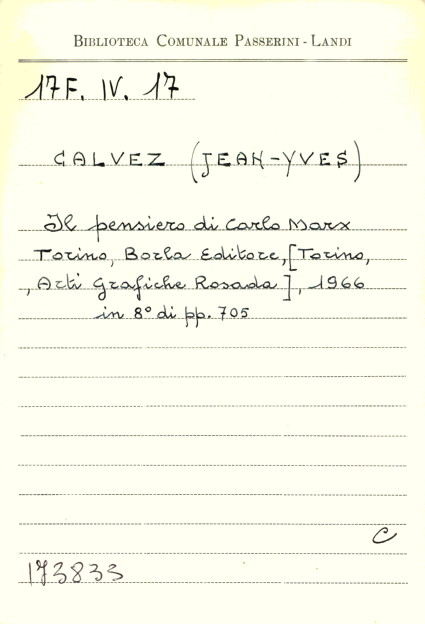 BIBLIOTECA COMUNALE PASSERINI - LANDI
17F. IV. 17
CALVEZ (JEAN-YVES)
Il pensiero di Carlo Marx
Torino, Borla Editore, [Torino,
, Arti Grafiche Rosada], 1966
in 8° di pp. 705
C
173833